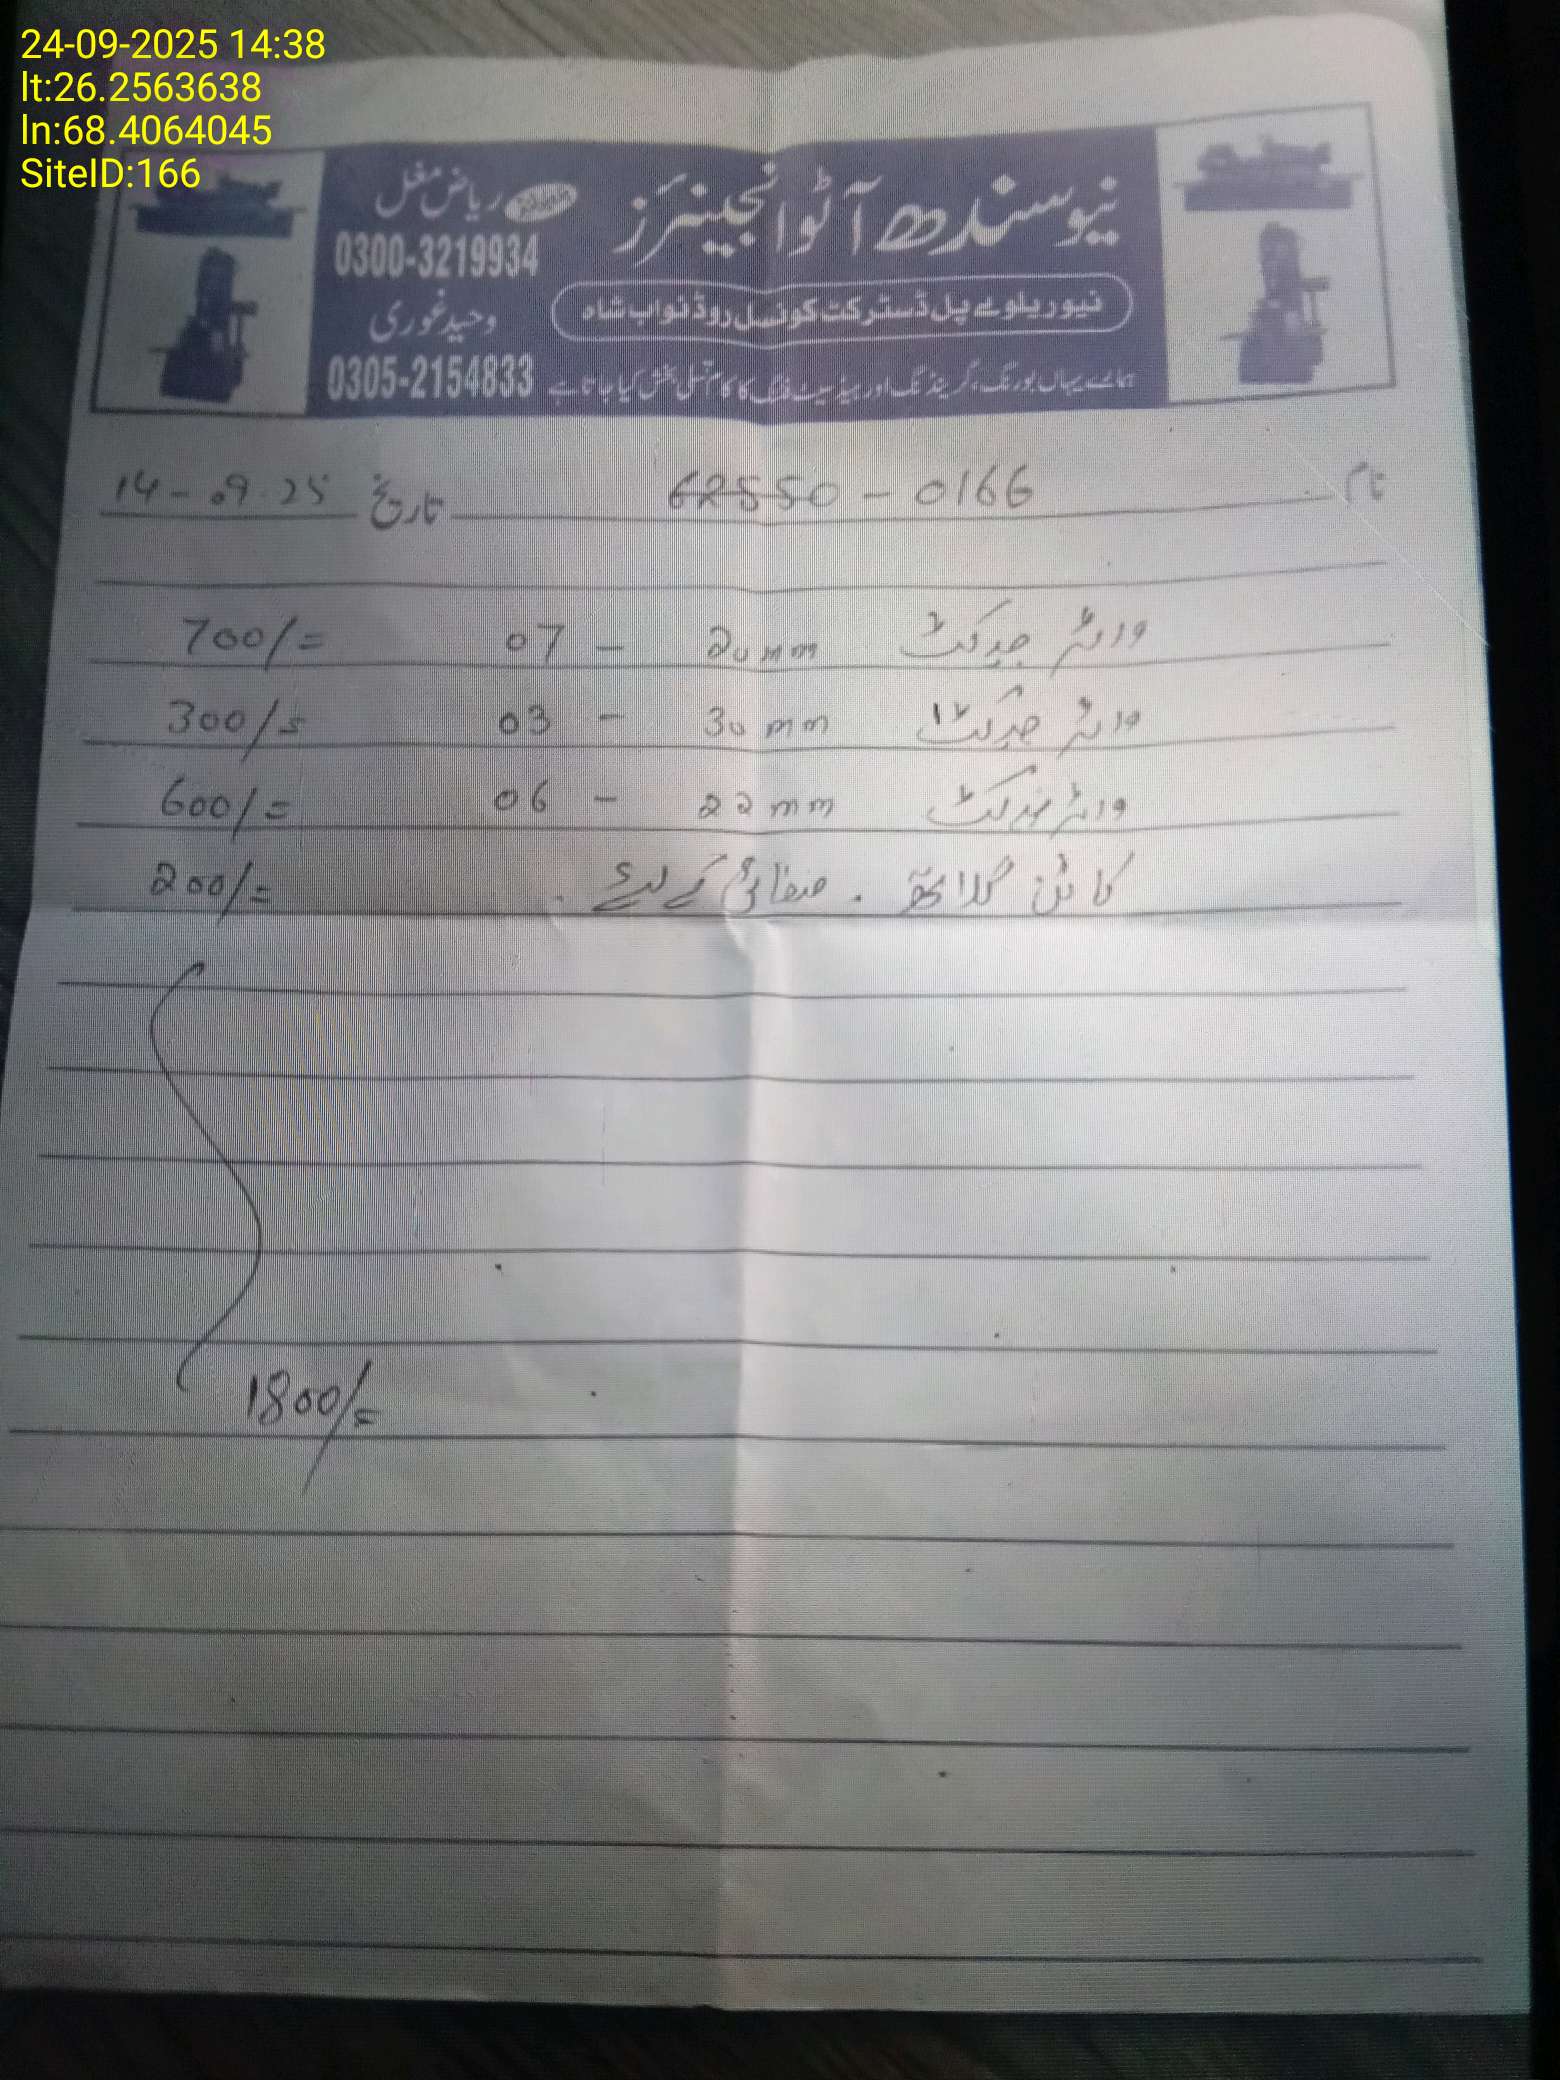 24-09-2025 14:38
lt:26.2563638
ln:68.4064045
SiteID:166
نیو سندھ آٹو انجینئرز
ریاض مغل
0300-3219934
نیو ریلوے پل ڈسٹرکٹ کونسل روڈ نواب شاہ
وحید غوری
0305-2154833
ہمارے یہاں بورنگ، گرینڈنگ اور ہیڈ سیٹ فٹنگ کا کام تسلی بخش کیا جاتا ہے
نام 62550 - 0166 تاریخ 14-09-25
واٹر جیکٹ 20mm - 07 700/=
واٹر جیکٹ 30mm - 03 300/=
واٹر جیکٹ 22mm - 06 600/=
کاٹن کلاتھ . صفائی کے لیئے . 200/=
1800/=